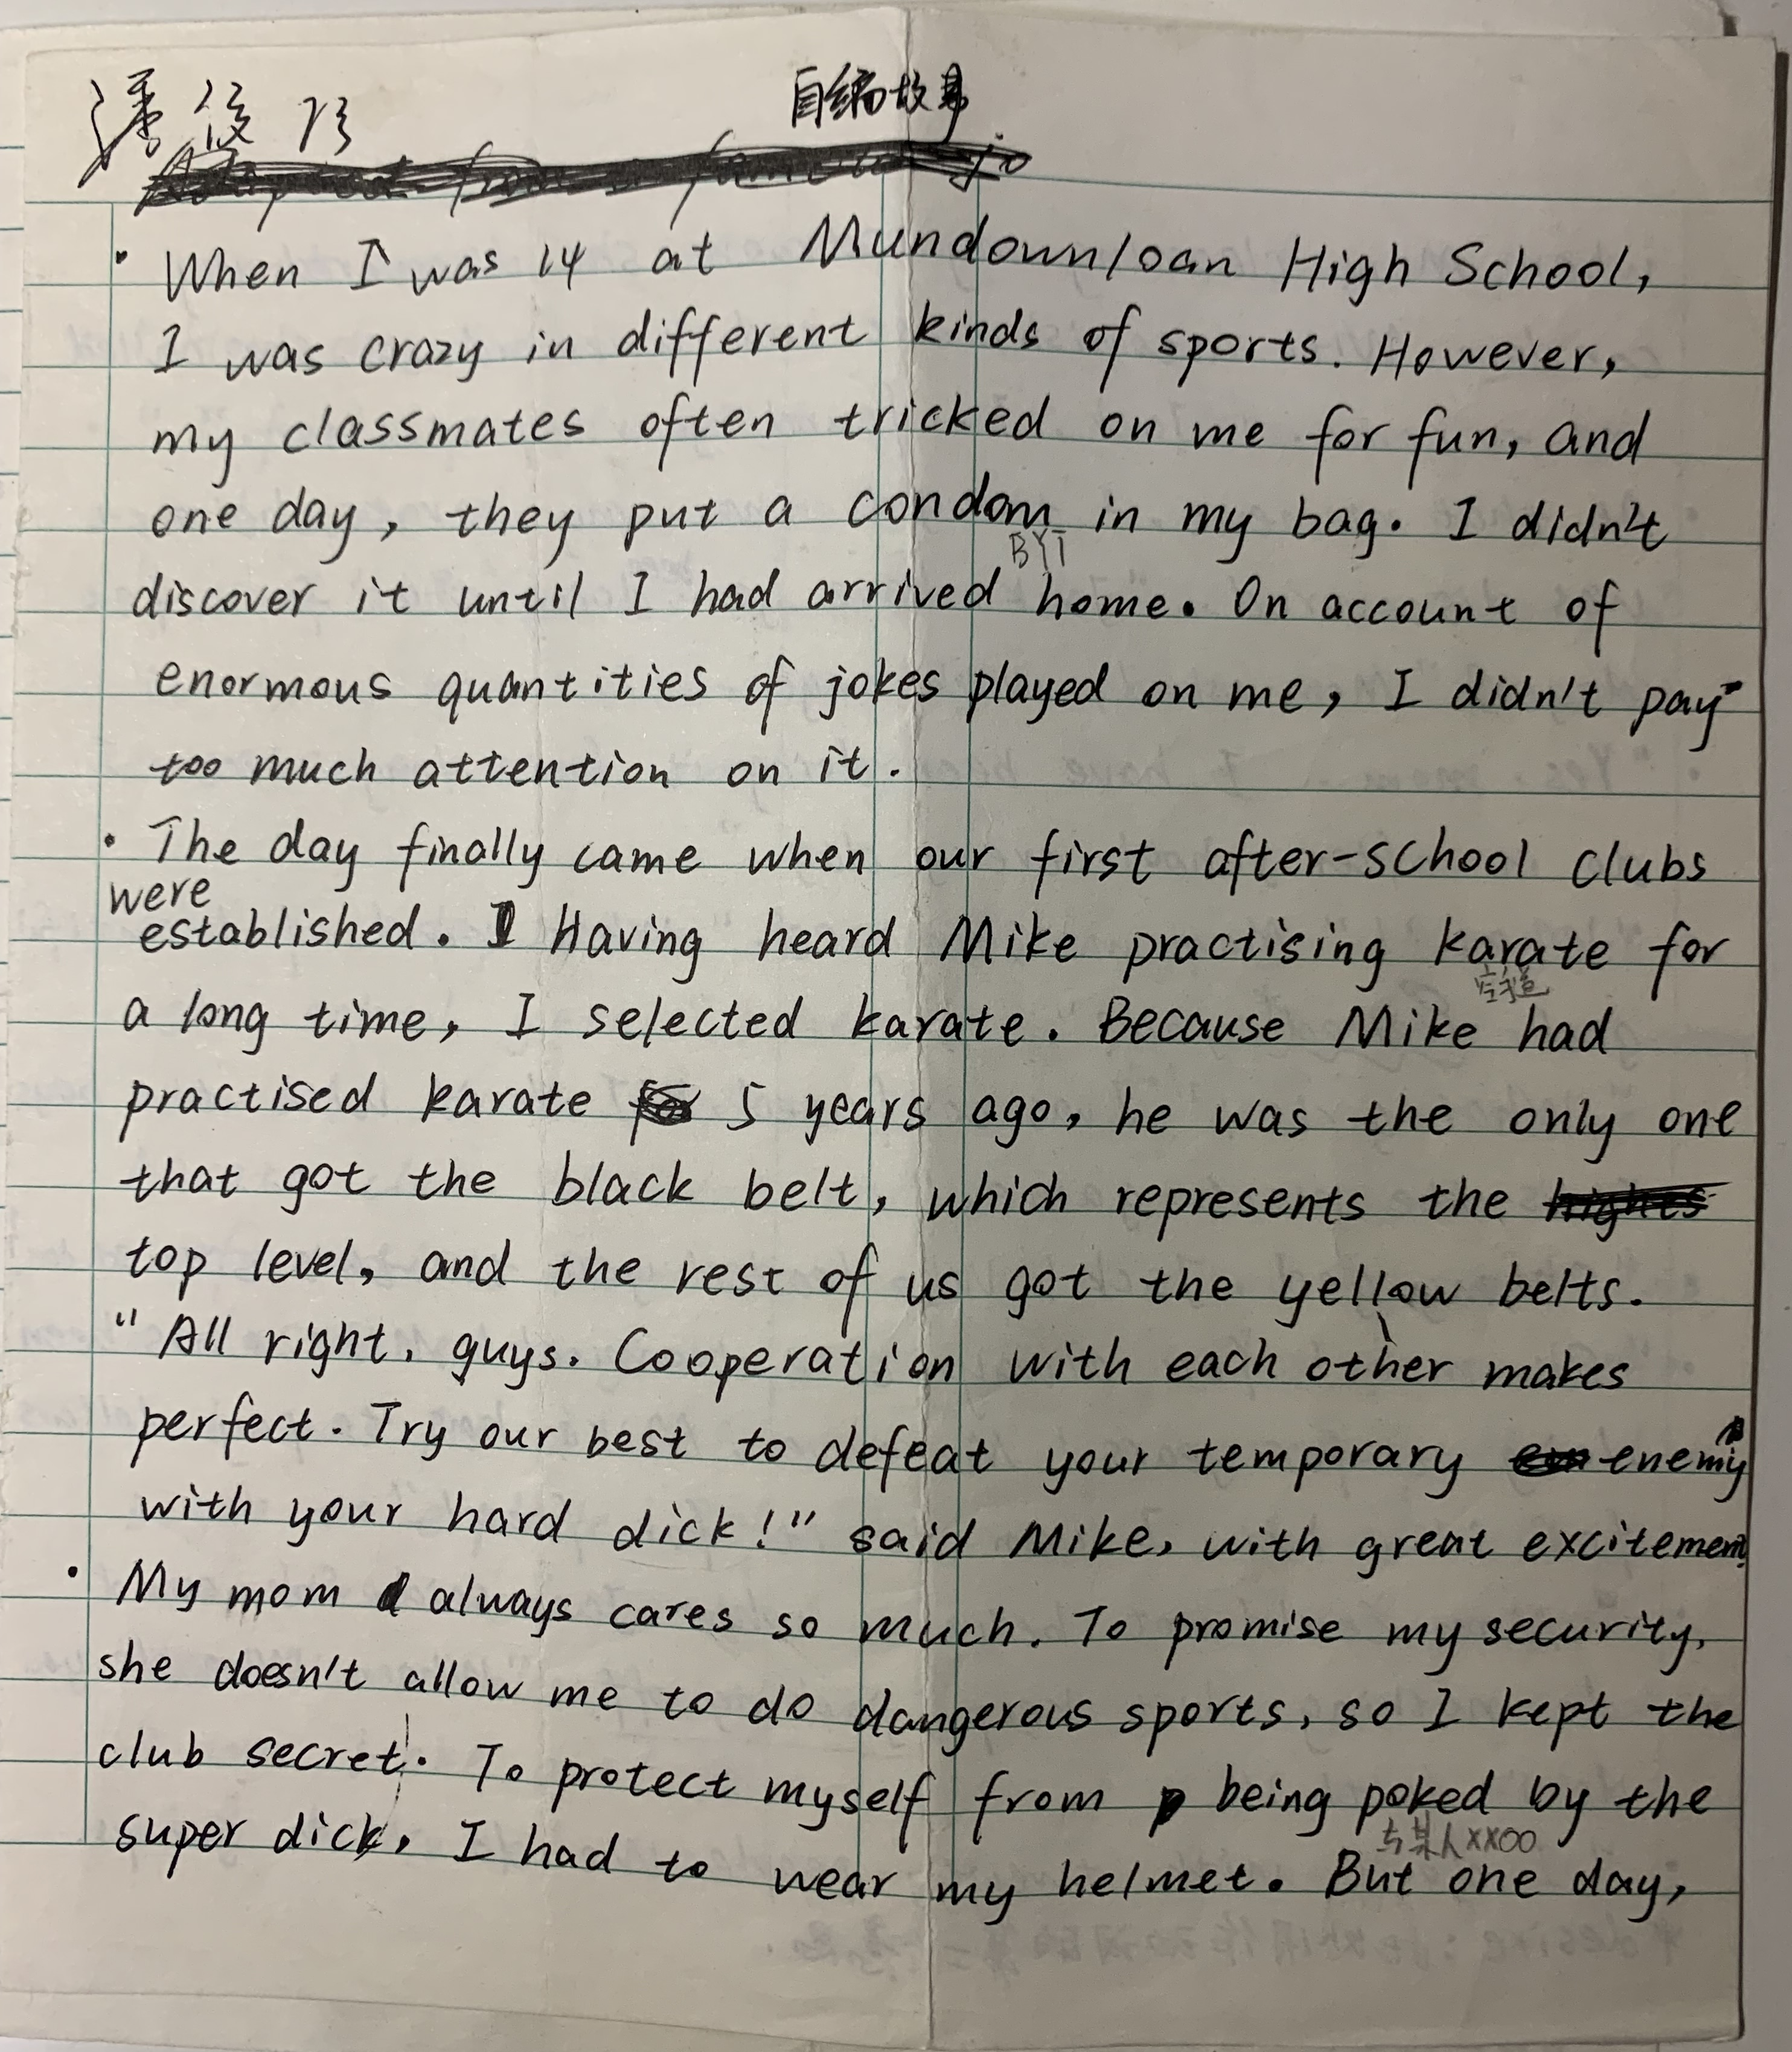 潘俊
自编故事
When I was 14 at Mundownloan High School,
I was crazy in different kinds of sports. However,
my classmates often tricked on me for fun, and
one day, they put a condom in my bag. I didn't
BYT
discover it until I had arrived home. On account of
enormous quantities of jokes played on me, I didn't pay
too much attention on it.
The day finally came when our first after-school clubs
were
established. Having heard Mike practising karate for
空手道
a long time, I selected karate. Because Mike had
practised karate 5 years ago, he was the only one
that got the black belt, which represents the
top level, and the rest of us got the yellow belts.
"All right, guys. Cooperation with each other makes
perfect. Try our best to defeat your temporary enemy
with your hard dick!" said Mike, with great excitement.
My mom always cares so much. To promise my security,
she doesn't allow me to do dangerous sports, so I kept the
club secret. To protect myself from being poked by the
与某人xxoo
super dick, I had to wear my helmet. But one day,